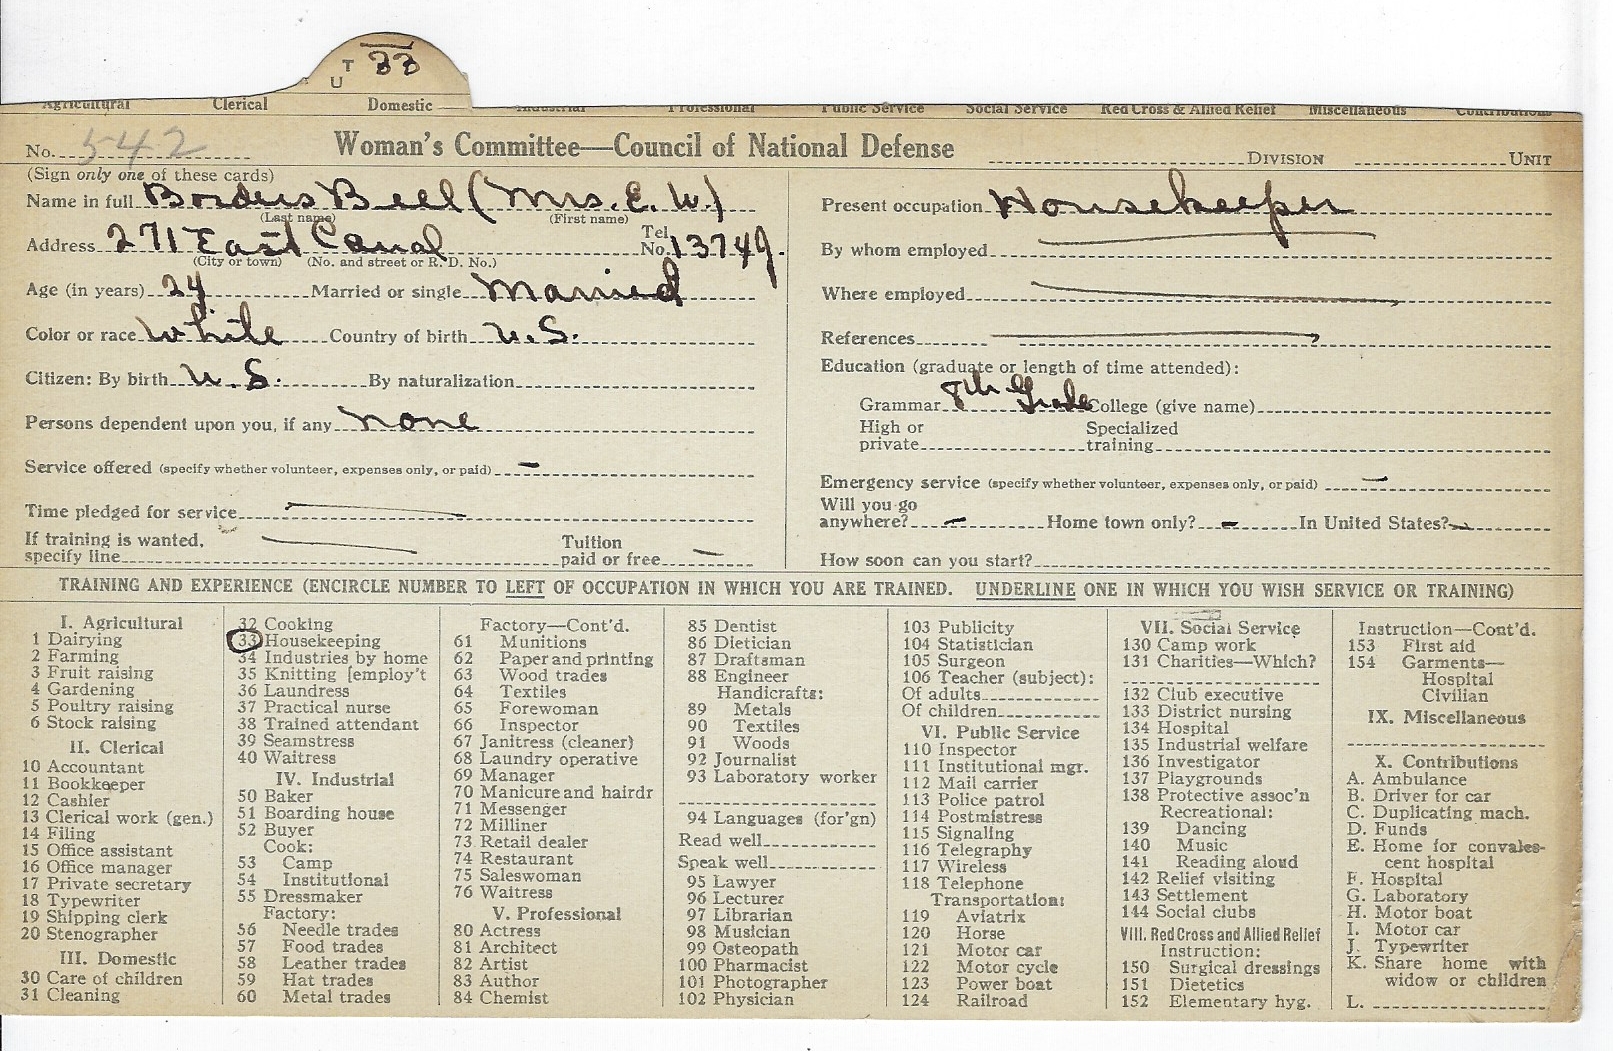 T 33
U
Agricultural Clerical Domestic Industrial Professional Public Service Social Service Red Cross & Allied Relief Miscellaneous Contributions
No. 542 Woman's Committee—Council of National Defense DIVISION UNIT
(Sign only one of these cards)
Name in full Borders Bell (Mrs. E. W.)
(Last name) (First name)
Address 271 East Canal Tel. No. 1374J.
(City or town) (No. and street or R. D. No.)
Age (in years) 24 Married or single Married
Color or race White Country of birth U.S.
Citizen: By birth U.S. By naturalization
Persons dependent upon you, if any none
Service offered (specify whether volunteer, expenses only, or paid) –
Time pledged for service
If training is wanted, specify line Tuition paid or free
Present occupation Housekeeper
By whom employed
Where employed
References
Education (graduate or length of time attended):
Grammar 8th Grade College (give name)
High or private Specialized training
Emergency service (specify whether volunteer, expenses only, or paid) –
Will you go anywhere? – Home town only? – In United States? –
How soon can you start?
TRAINING AND EXPERIENCE (ENCIRCLE NUMBER TO LEFT OF OCCUPATION IN WHICH YOU ARE TRAINED. UNDERLINE ONE IN WHICH YOU WISH SERVICE OR TRAINING)
I. Agricultural
1 Dairying
2 Farming
3 Fruit raising
4 Gardening
5 Poultry raising
6 Stock raising
II. Clerical
10 Accountant
11 Bookkeeper
12 Cashier
13 Clerical work (gen.)
14 Filing
15 Office assistant
16 Office manager
17 Private secretary
18 Typewriter
19 Shipping clerk
20 Stenographer
III. Domestic
30 Care of children
31 Cleaning
32 Cooking
33 Housekeeping
34 Industries by home
35 Knitting [employ't
36 Laundress
37 Practical nurse
38 Trained attendant
39 Seamstress
40 Waitress
IV. Industrial
50 Baker
51 Boarding house
52 Buyer
Cook:
53 Camp
54 Institutional
55 Dressmaker
Factory:
56 Needle trades
57 Food trades
58 Leather trades
59 Hat trades
60 Metal trades
Factory—Cont'd.
61 Munitions
62 Paper and printing
63 Wood trades
64 Textiles
65 Forewoman
66 Inspector
67 Janitress (cleaner)
68 Laundry operative
69 Manager
70 Manicure and hairdr
71 Messenger
72 Milliner
73 Retail dealer
74 Restaurant
75 Saleswoman
76 Waitress
V. Professional
80 Actress
81 Architect
82 Artist
83 Author
84 Chemist
85 Dentist
86 Dietician
87 Draftsman
88 Engineer
Handicrafts:
89 Metals
90 Textiles
91 Woods
92 Journalist
93 Laboratory worker
94 Languages (for'gn)
Read well
Speak well
95 Lawyer
96 Lecturer
97 Librarian
98 Musician
99 Osteopath
100 Pharmacist
101 Photographer
102 Physician
103 Publicity
104 Statistician
105 Surgeon
106 Teacher (subject):
Of adults
Of children
VI. Public Service
110 Inspector
111 Institutional mgr.
112 Mail carrier
113 Police patrol
114 Postmistress
115 Signaling
116 Telegraphy
117 Wireless
118 Telephone
Transportation:
119 Aviatrix
120 Horse
121 Motor car
122 Motor cycle
123 Power boat
124 Railroad
VII. Social Service
130 Camp work
131 Charities—Which?
132 Club executive
133 District nursing
134 Hospital
135 Industrial welfare
136 Investigator
137 Playgrounds
138 Protective assoc'n
Recreational:
139 Dancing
140 Music
141 Reading aloud
142 Relief visiting
143 Settlement
144 Social clubs
VIII. Red Cross and Allied Relief
Instruction:
150 Surgical dressings
151 Dietetics
152 Elementary hyg.
Instruction—Cont'd.
153 First aid
154 Garments—
Hospital
Civilian
IX. Miscellaneous
X. Contributions
A. Ambulance
B. Driver for car
C. Duplicating mach.
D. Funds
E. Home for convales-
cent hospital
F. Hospital
G. Laboratory
H. Motor boat
I. Motor car
J. Typewriter
K. Share home with
widow or children
L.